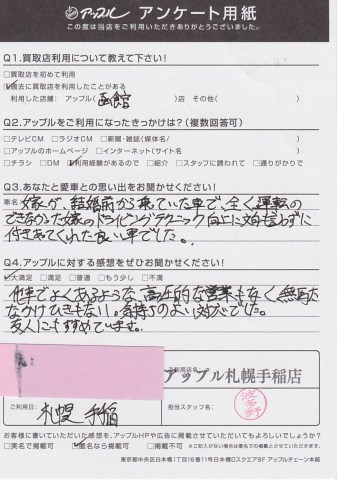 アップル アンケート用紙
この度は当店をご利用いただきありがとうございました。
Q1.買取店利用について教えて下さい!
□買取店を初めて利用
☑過去に買取店を利用したことがある
利用した店舗: アップル( 函館 )店 その他( )
Q2.アップルをご利用になったきっかけは?(複数回答可)
□テレビCM □ラジオCM □新聞・雑誌(媒体名/ )
□アップルのホームページ □インターネット(サイト名 )
□チラシ □DM ☑利用経験があるので □紹介 □スタッフに誘われて □通りがかりで
Q3.あなたと愛車との思い出をお聞かせください!
車名
嫁が、結婚前から乗っていた車で、全く運転の
できなかった嫁のドライビングテクニック向上に文句も言わずに
付きあってくれた良い車でした。
Q4.アップルに対する感想をぜひお聞かせください!
☑大満足 □満足 □普通 □もう少し □不満
他車でよくあるような、高圧的な営業もなく無駄
なかけひきもない。気持ちのよい対応でした。
友人にもすすめています。
ご利用店名:
アップル札幌手稲店
ご利用日:
札幌 手稲
担当スタッフ名:
お客様に書いていただいた感想を、アップルHPや広告に掲載させていただいてもよろしいでしょうか?
□実名で掲載可 ☑匿名なら掲載可 □掲載不可 ※ご記入がない場合は匿名での掲載とさせていただきます。
東京都中央区日本橋1丁目16番11号日本橋Dスクエア9F アップルチェーン本部